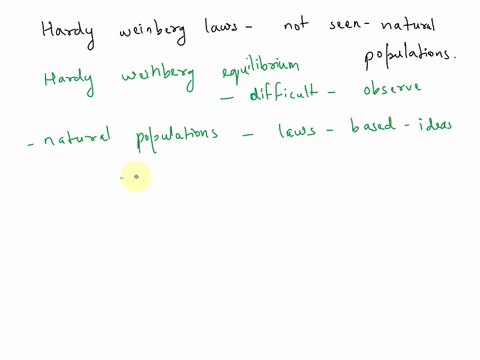 Hardy weinberg laws - not seen - natural
populations.
Hardy weinberg equilibrium
- difficult - observe
- natural populations - laws - based - ideas
-